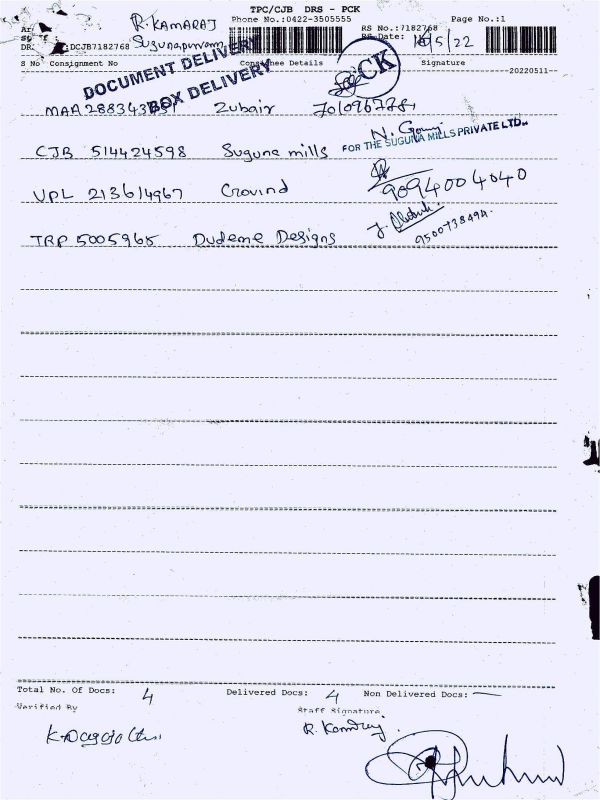 TPC/CJB DRS - PCK
R. KAMARAJ Phone No.:0422-3505555 Page No.:1
Sugunapuram RS No.:7182768
DCJB7182768 Date: /5/22
S No Consignment No Consignee Details Signature
20220511
DOCUMENT DELIVERY
BOX DELIVERY
CK
Zubair
N.
CJB 514424598 Suguna mills FOR THE SUGUNA MILLS PRIVATE LTD..
VPL 213614967 Govind 9094004040
TRP 5005965 Dudeme Designs 9500738494.
Total No. Of Docs: 4 Delivered Docs: 4 Non Delivered Docs: —
Verified By Staff Signature
R. Kamraj